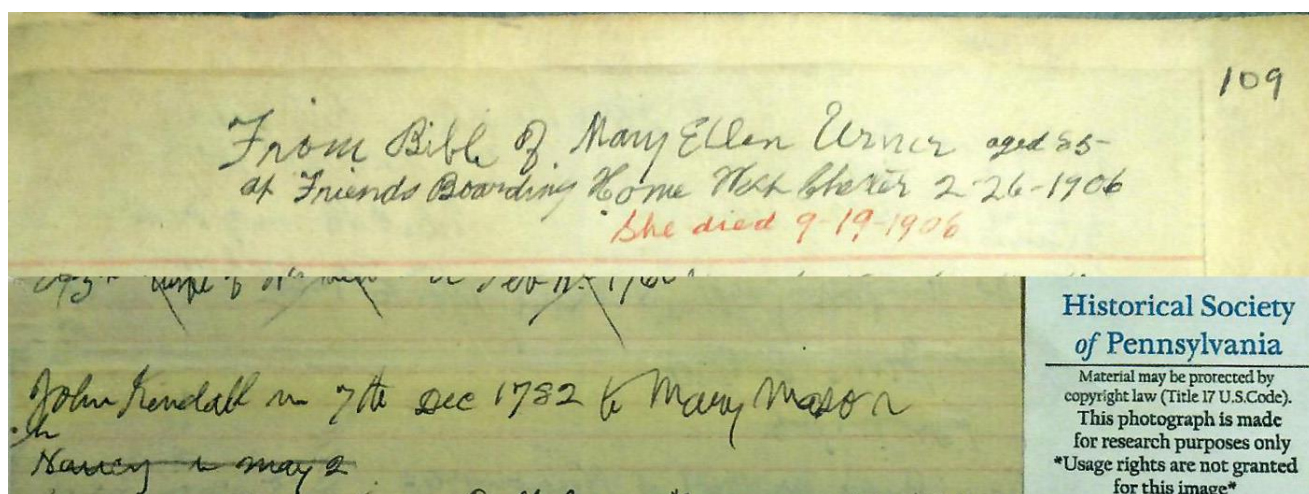 109
From Bible of Mary Ellen Urner aged 85
at Friends Boarding Home West Chester 2-26-1906
She died 9-19-1906
John Kendall m 7th Dec 1782 to Mary Mason
Nancy may 2
Historical Society
of Pennsylvania
Material may be protected by
copyright law (Title 17 U.S.Code).
This photograph is made
for research purposes only
*Usage rights are not granted
for this image*